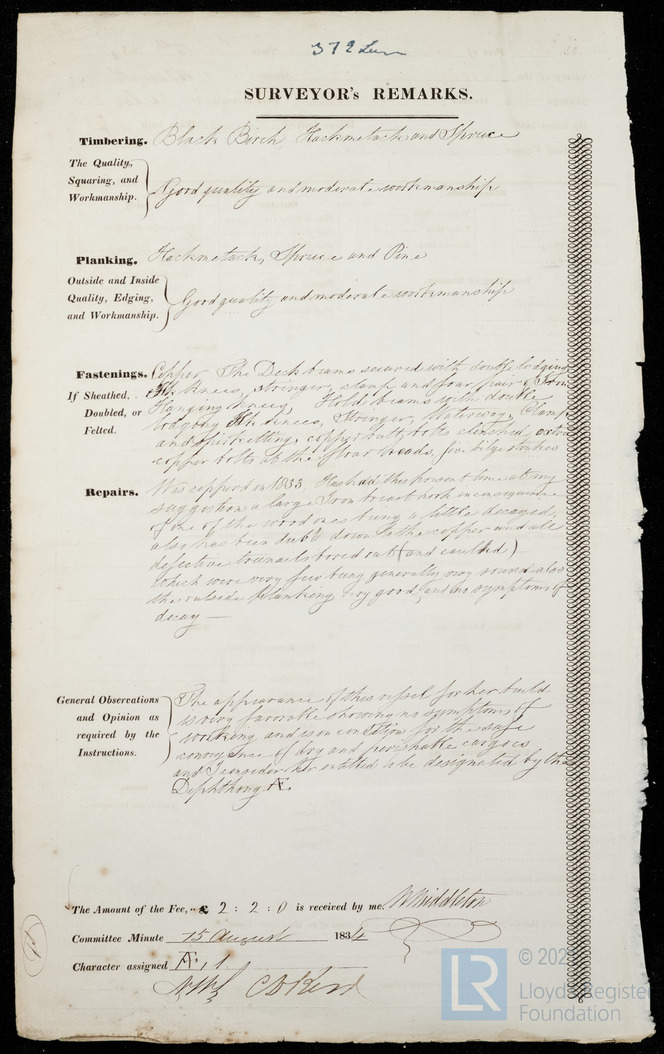 372
SURVEYOR's REMARKS.
Timbering. Black Birch Hackmetack and Spruce
The Quality,
Squaring, and
Workmanship.
Good quality and moderate workmanship
Planking. Hackmetack, Spruce and Pine
Outside and Inside
Quality, Edging,
and Workmanship.
Good quality and moderate workmanship
Fastenings. Copper The Deck beams secured with double lodging
If Sheathed, Knees, stringer, clamp and four pair of Iron
Doubled, or Hanging Knees, Hold beams with double
Felted. lodging Knees, Stringer, Waterway, Clamp
and Spirketting, copper butt bolts clenched, extra
copper bolts at the floor heads, five bilge strakes
Repairs. Was coppered in 1833 Has had this present time at my
suggestion a large Iron breast hook in consequence
of one of the wood ones being a little decayed,
also has been dubb'd down to the copper and all
defective treenails bored out (and caulked)
which were very few being generally very sound, also
the outside Planking very good, and no symptoms of
decay —
General Observations
and Opinion as
required by the
Instructions.
The appearance of this vessel for her build
is very favorable showing no symptoms of
working and is in condition for the safe
conveyance of dry and perishable cargoes
and I consider her entitled to be designated by the
Diphthong Æ.
The Amount of the Fee, £ 2 : 2 : 0 is received by me. W Middleton
Committee Minute 15 August 1834
Character assigned Æ, 1
© 202
LR
Lloyd's Register
Foundation